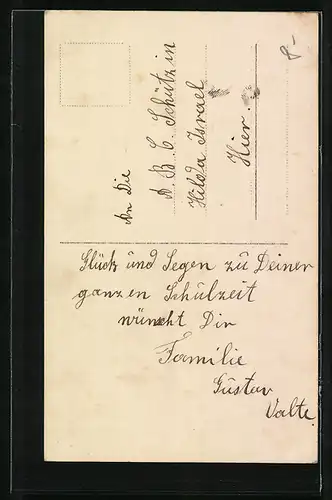 An Die
A. B. C. Schütz in
Hilda Israel
Hier.
8-
Glück und Segen zu Deiner
ganzen Schulzeit
wünscht Dir
Familie
Gustav
Valte.